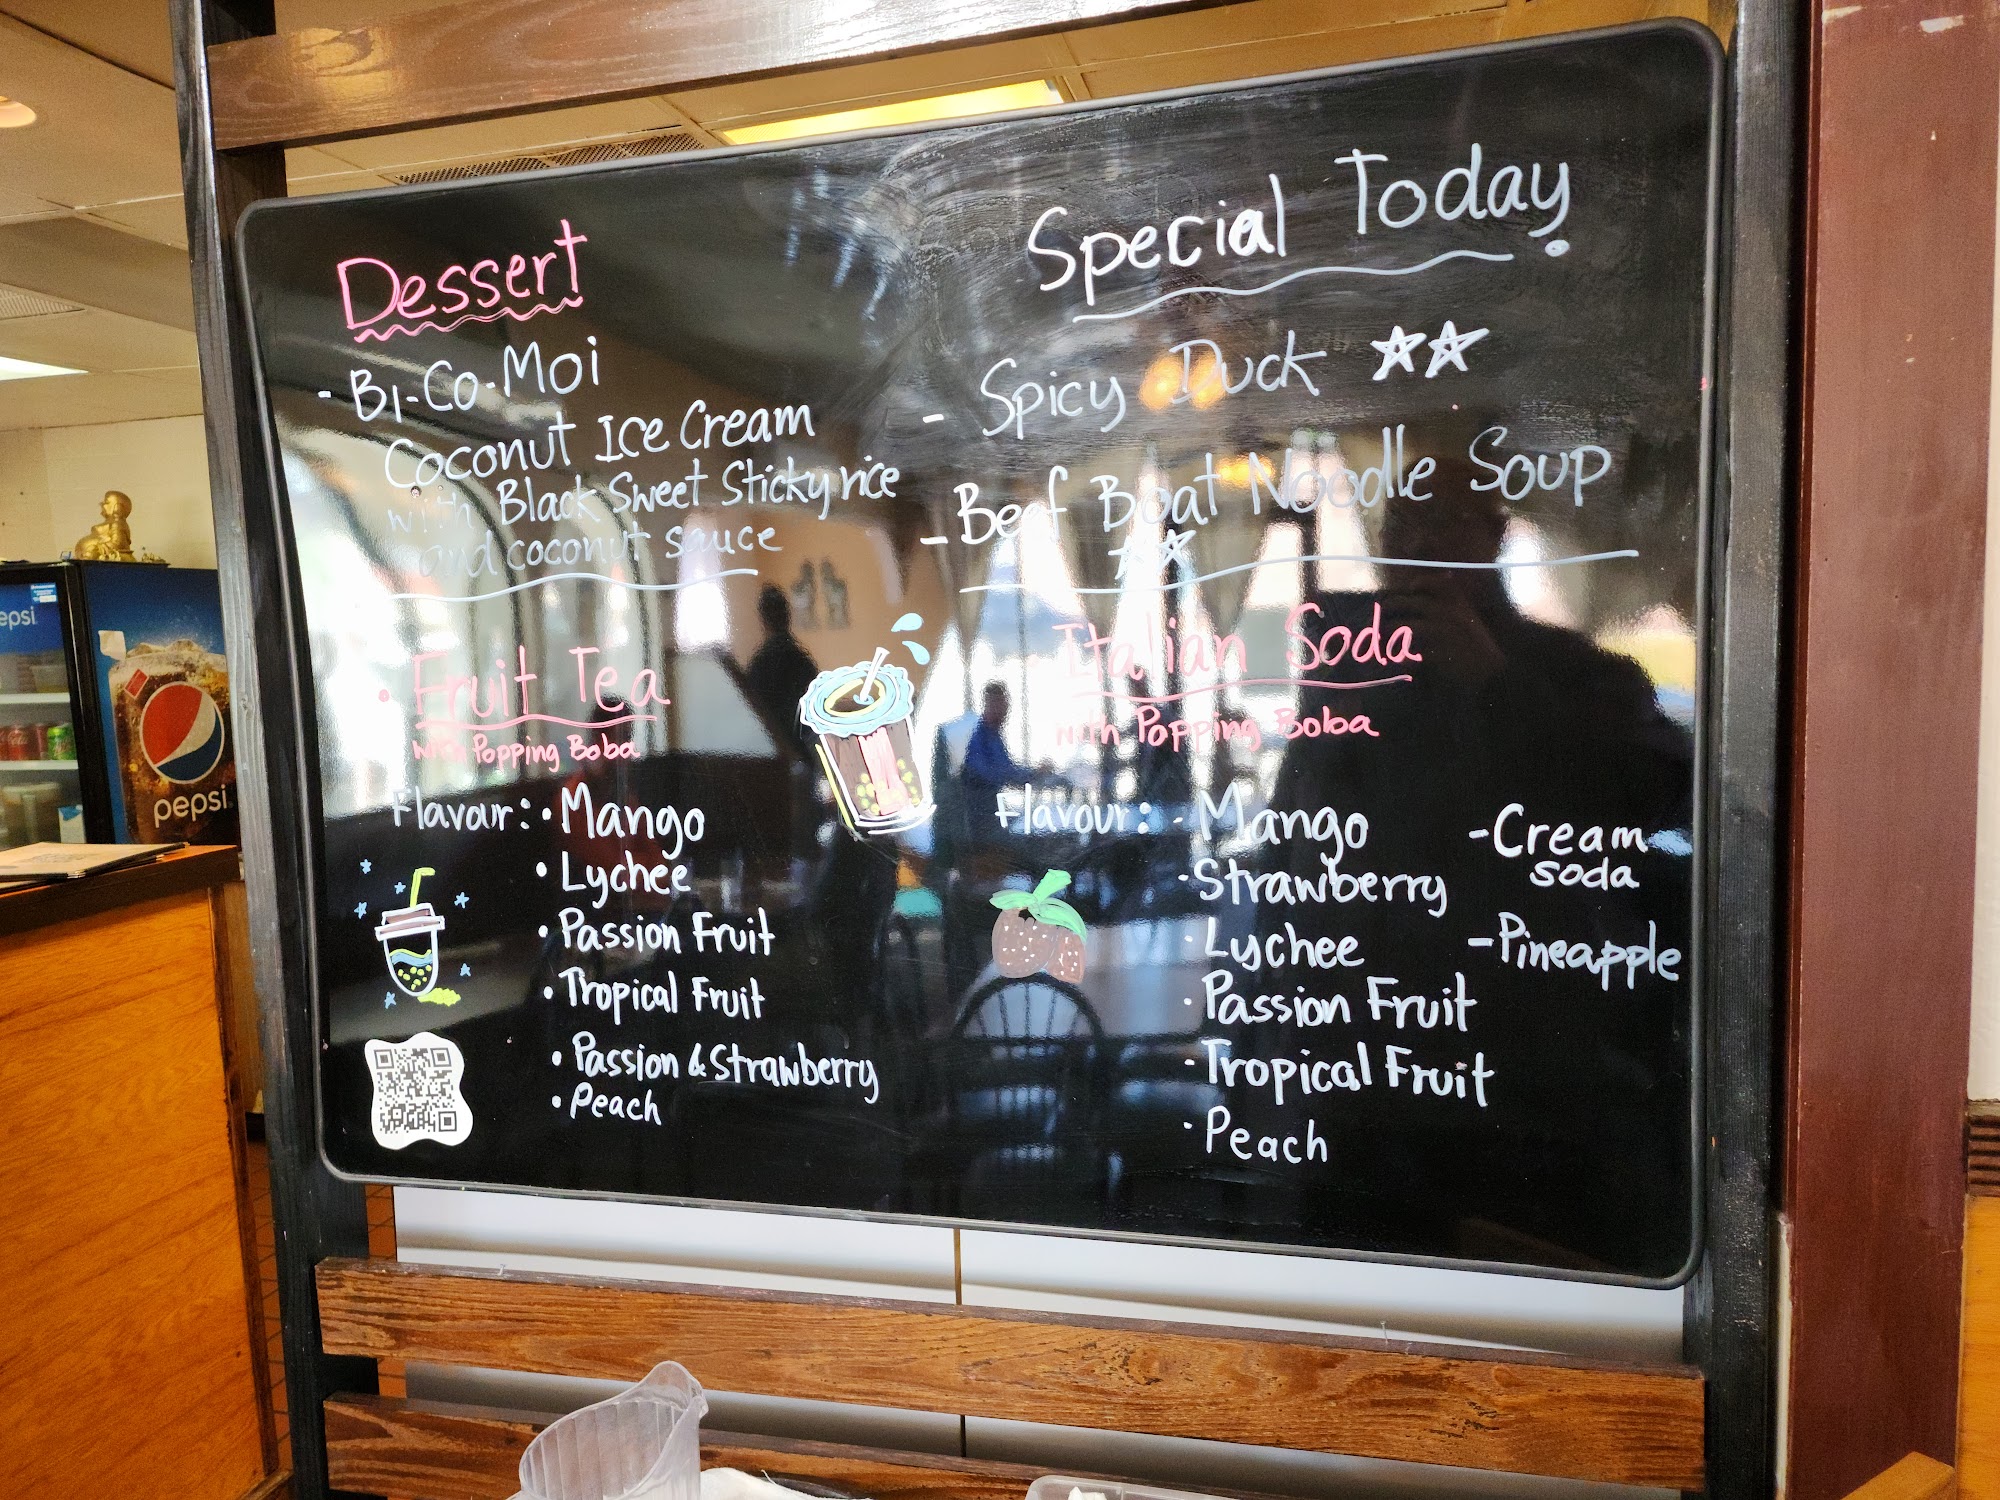 Dessert
- Bi-Co-Moi
Coconut Ice Cream
with Black Sweet Sticky rice
and coconut sauce
Special Today
- Spicy Duck ☆☆
- Beef Boat Noodle Soup
☆☆
• Fruit Tea
with Popping Boba
Flavour: • Mango
• Lychee
• Passion Fruit
• Tropical Fruit
• Passion & Strawberry
• Peach
- Italian Soda
with Popping Boba
Flavour: - Mango
- Strawberry
- Lychee
- Passion Fruit
- Tropical Fruit
- Peach
- Cream
soda
- Pineapple
epsi
pepsi